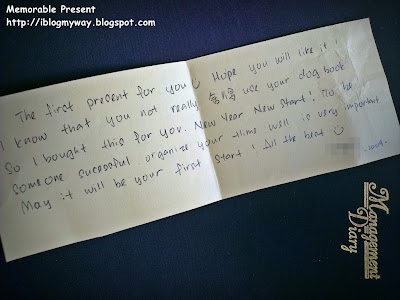 Memorable Present
http://iblogmyway.blogspot.com
The first present for you ☺ Hope you will like it !
I know that you not really use your dog book
So I bought this for you. New Year New Start! To be
someone sucessful, organize your time well is very important.
May it will be your first start ! All the best ☺
Management
Diary